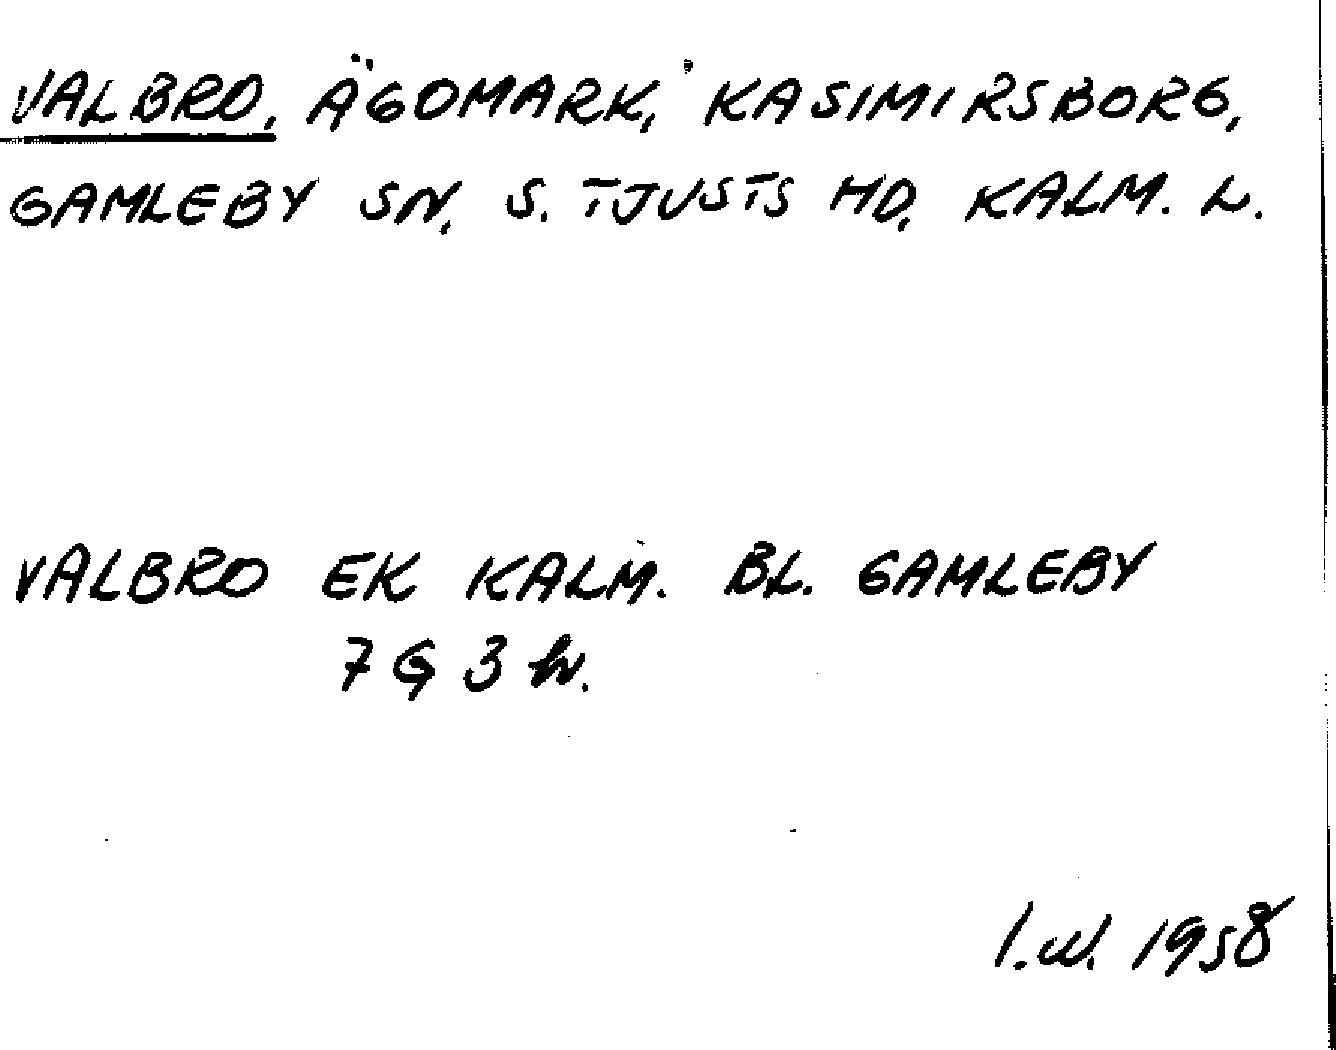 VALBRO, ÄGOMARK, KASIMIRSBORG,
GAMLEBY SN, S. TJUSTS HD, KALM. L.
VALBRO EK KALM. BL. GAMLEBY
7 G 3 h.
I.W. 1958